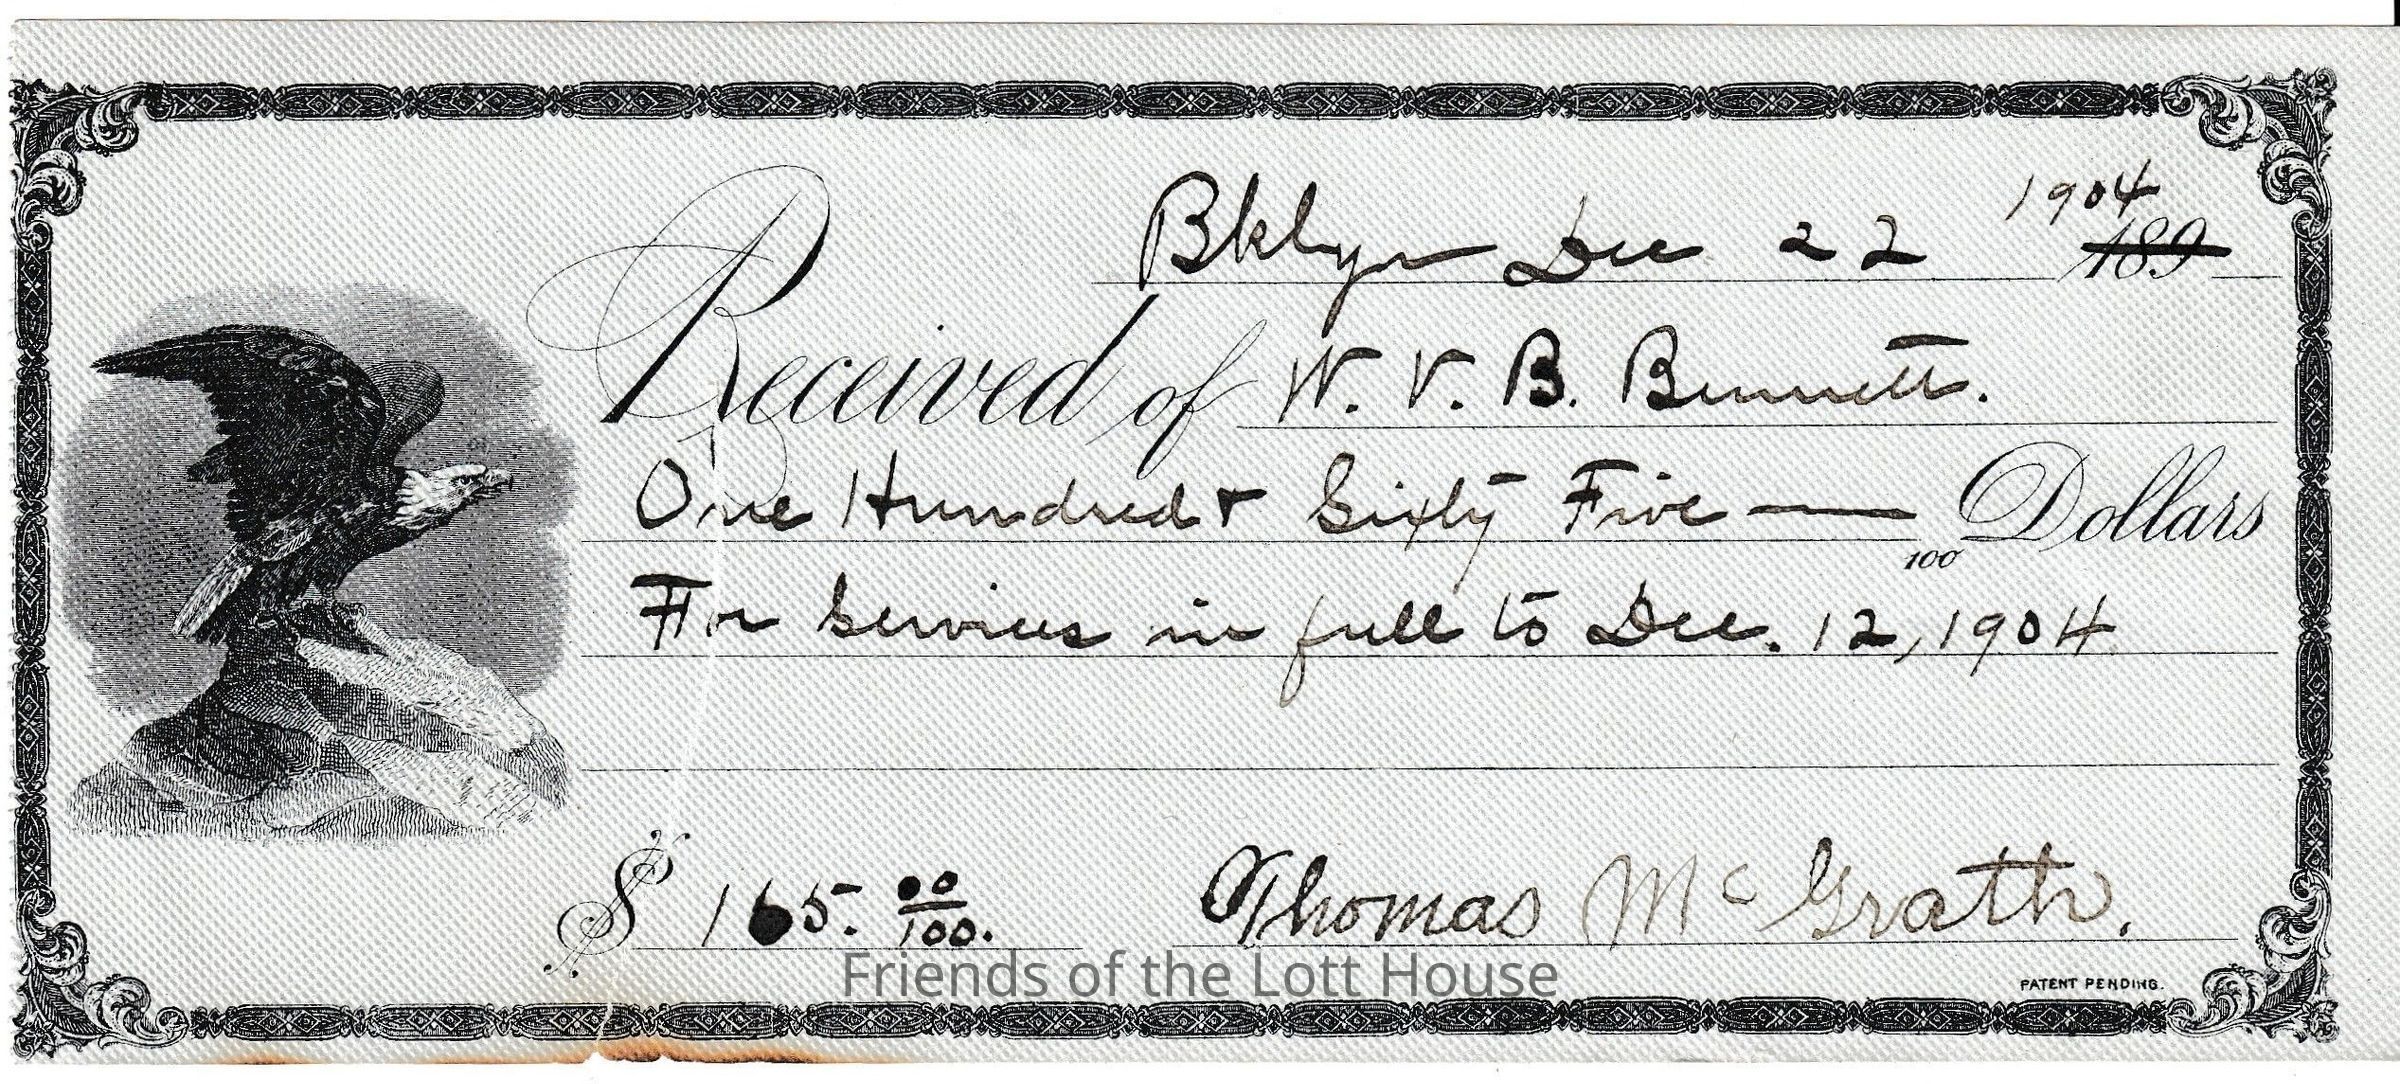 Bklyn Dec 22 1904 189
Received of W. V. B. Bennett.
One Hundred + Sixty Five — 100 Dollars
For Services in full to Dec. 12, 1904
$ 165. 00/100. Thomas McGrath.
Friends of the Lott House
PATENT PENDING.